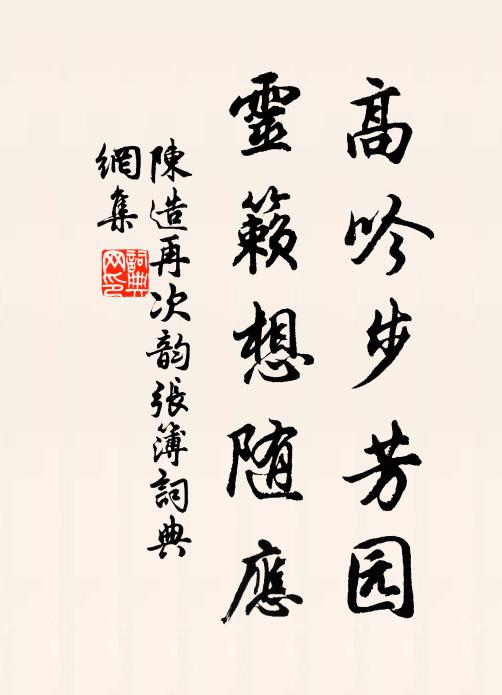 高吟步芳园
靈籟想随應
陳造再次韵張簿詞典
網集
詞典
网印